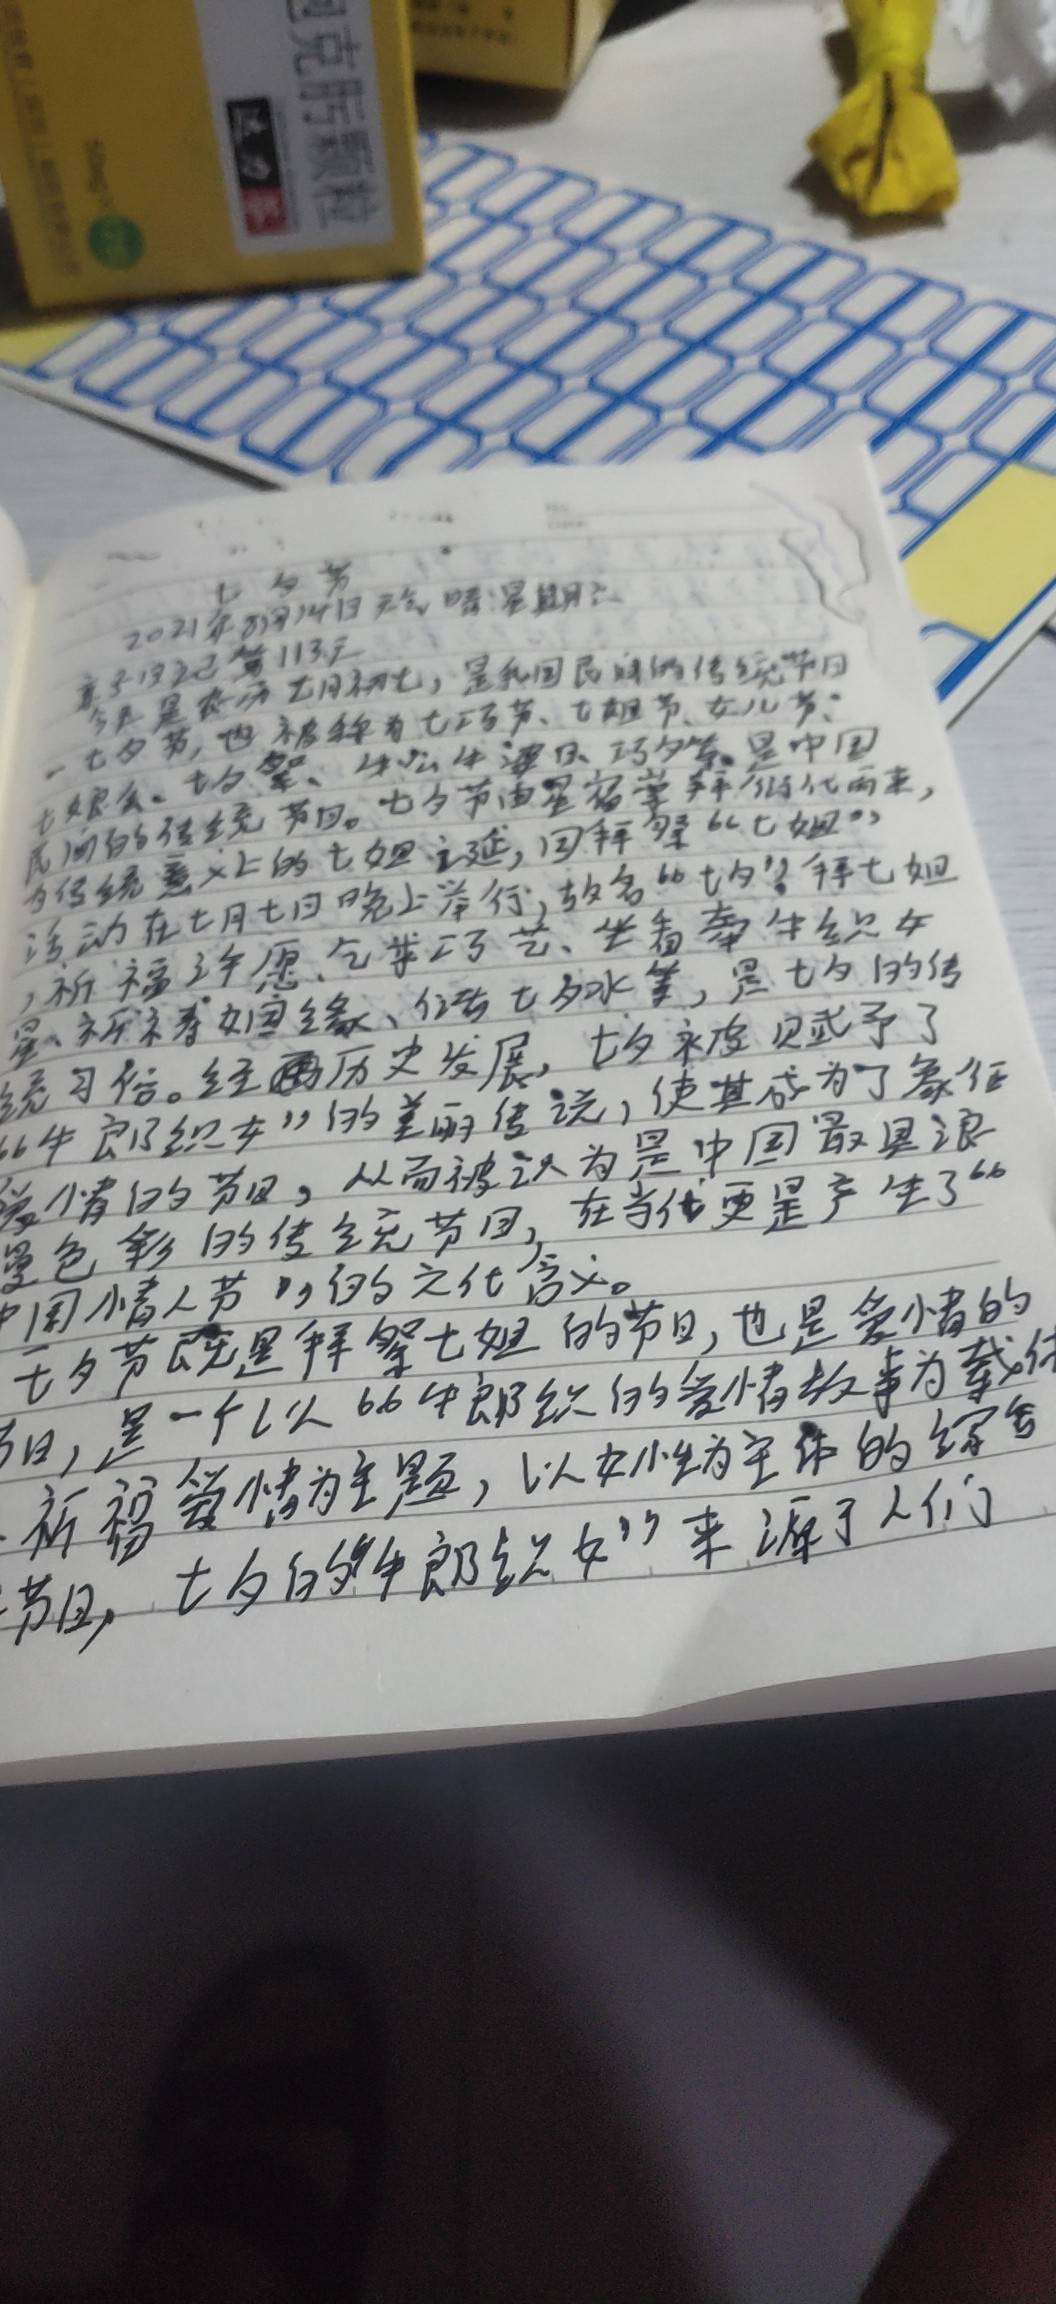 克肝颗粒
七夕节
2021年8月14日 天气 晴 星期六
第113天
今天是农历七月初七，是我国民间的传统节日
一七夕节，也被称为七巧节、七姐节、女儿节、
七娘会、七夕祭、牛公牛婆日、巧夕等。是中国
民间的传统节日。七夕节由星宿崇拜演化而来，
为传统意义上的七姐诞，因拜祭“七姐”
活动在七月七日晚上举行，故名“七夕”。拜七姐
，祈福许愿、乞求巧艺、坐看牵牛织女
星、祈祷姻缘、储七夕水等，是七夕的传
统习俗。经历史发展，七夕被赋予了
“牛郎织女”的美丽传说，使其成为了象征
爱情的节日，从而被认为是中国最具浪
漫色彩的传统节日，在当代更是产生了“
中国情人节”的文化含义。
七夕节既是拜祭七姐的节日，也是爱情的
节日，是一个以“牛郎织的爱情故事为载体
、祈福爱情为主题，以女性为主体的综合
节日，七夕的“牛郎织女”来源于人们